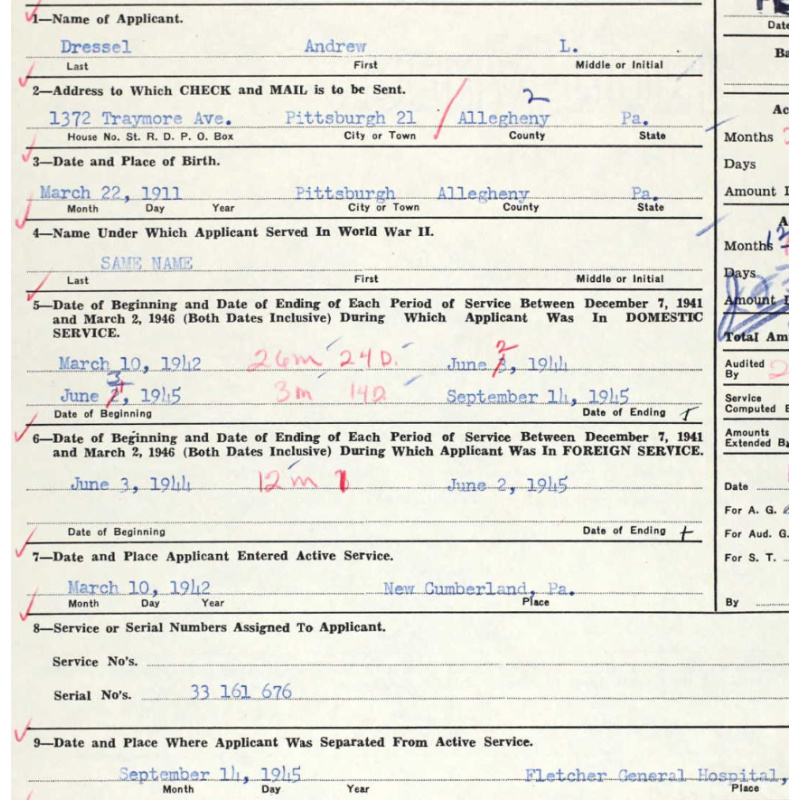 1—Name of Applicant.
Dressel Andrew L.
Last First Middle or Initial
2—Address to Which CHECK and MAIL is to be Sent.
2
1372 Traymore Ave. Pittsburgh 21 Allegheny Pa.
House No. St. R. D. P. O. Box City or Town County State
3—Date and Place of Birth.
March 22, 1911 Pittsburgh Allegheny Pa.
Month Day Year City or Town County State
4—Name Under Which Applicant Served In World War II.
SAME NAME
Last First Middle or Initial
5—Date of Beginning and Date of Ending of Each Period of Service Between December 7, 1941
and March 2, 1946 (Both Dates Inclusive) During Which Applicant Was In DOMESTIC
SERVICE.
March 10, 1942 26m 24D. June 2, 1944
June 3, 1945 3m 14D September 14, 1945
Date of Beginning Date of Ending
6—Date of Beginning and Date of Ending of Each Period of Service Between December 7, 1941
and March 2, 1946 (Both Dates Inclusive) During Which Applicant Was In FOREIGN SERVICE.
June 3, 1944 12m June 2, 1945
Date of Beginning Date of Ending
7—Date and Place Applicant Entered Active Service.
March 10, 1942 New Cumberland, Pa.
Month Day Year Place
8—Service or Serial Numbers Assigned To Applicant.
Service No's.
Serial No's. 33 161 676
9—Date and Place Where Applicant Was Separated From Active Service.
September 14, 1945 Fletcher General Hospital,
Month Day Year Place
Date
Ba
Ac
Months
Days
Amount
A
Months
Days
Amount
Total Am
Audited
By
Service
Computed
Amounts
Extended By
Date
For A. G.
For Aud. G.
For S. T.
By